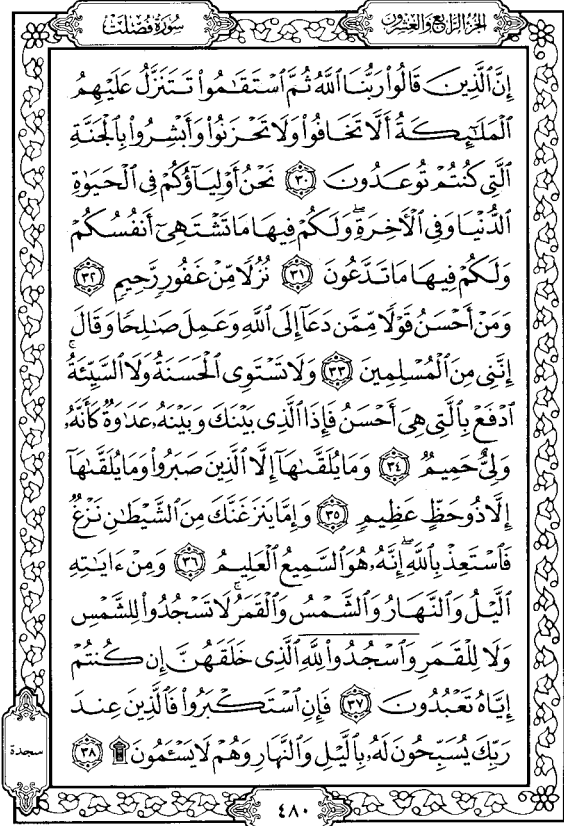 سُورَةُ فُصِّلَتْ
الجُزْءُ الرَّابِعُ وَالعِشْرُونَ
إِنَّ ٱلَّذِينَ قَالُوا۟ رَبُّنَا ٱللَّهُ ثُمَّ ٱسْتَقَٰمُوا۟ تَتَنَزَّلُ عَلَيْهِمُ
ٱلْمَلَٰٓئِكَةُ أَلَّا تَخَافُوا۟ وَلَا تَحْزَنُوا۟ وَأَبْشِرُوا۟ بِٱلْجَنَّةِ
ٱلَّتِى كُنتُمْ تُوعَدُونَ ٣٠ نَحْنُ أَوْلِيَآؤُكُمْ فِى ٱلْحَيَوٰةِ
ٱلدُّنْيَا وَفِى ٱلْءَاخِرَةِ ۖ وَلَكُمْ فِيهَا مَا تَشْتَهِىٓ أَنفُسُكُمْ
وَلَكُمْ فِيهَا مَا تَدَّعُونَ ٣١ نُزُلًا مِّنْ غَفُورٍ رَّحِيمٍ ٣٢
وَمَنْ أَحْسَنُ قَوْلًا مِّمَّن دَعَآ إِلَى ٱللَّهِ وَعَمِلَ صَٰلِحًا وَقَالَ
إِنَّنِى مِنَ ٱلْمُسْلِمِينَ ٣٣ وَلَا تَسْتَوِى ٱلْحَسَنَةُ وَلَا ٱلسَّيِّئَةُ ۚ
ٱدْفَعْ بِٱلَّتِى هِىَ أَحْسَنُ فَإِذَا ٱلَّذِى بَيْنَكَ وَبَيْنَهُۥ عَدَٰوَةٌ كَأَنَّهُۥ
وَلِىٌّ حَمِيمٌ ٣٤ وَمَا يُلَقَّىٰهَآ إِلَّا ٱلَّذِينَ صَبَرُوا۟ وَمَا يُلَقَّىٰهَآ
إِلَّا ذُو حَظٍّ عَظِيمٍ ٣٥ وَإِمَّا يَنزَغَنَّكَ مِنَ ٱلشَّيْطَٰنِ نَزْغٌ
فَٱسْتَعِذْ بِٱللَّهِ ۖ إِنَّهُۥ هُوَ ٱلسَّمِيعُ ٱلْعَلِيمُ ٣٦ وَمِنْ ءَايَٰتِهِ
ٱلَّيْلُ وَٱلنَّهَارُ وَٱلشَّمْسُ وَٱلْقَمَرُ ۚ لَا تَسْجُدُوا۟ لِلشَّمْسِ
وَلَا لِلْقَمَرِ وَٱسْجُدُوا۟ لِلَّهِ ٱلَّذِى خَلَقَهُنَّ إِن كُنتُمْ
إِيَّاهُ تَعْبُدُونَ ٣٧ فَإِنِ ٱسْتَكْبَرُوا۟ فَٱلَّذِينَ عِندَ
رَبِّكَ يُسَبِّحُونَ لَهُۥ بِٱلَّيْلِ وَٱلنَّهَارِ وَهُمْ لَا يَسْـَٔمُونَ ۩ ٣٨
سجدة
٤٨٠